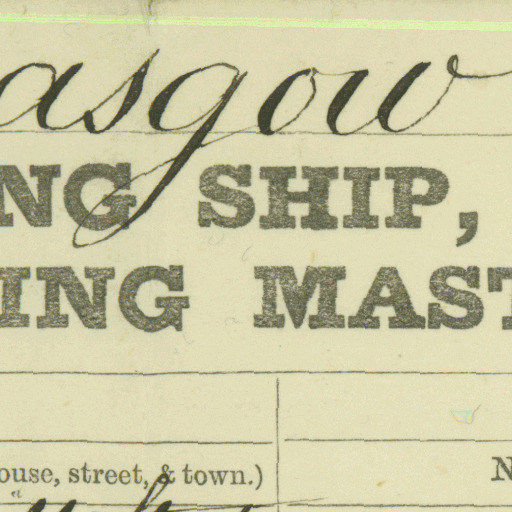 asgow
NG SHIP,
ING MAST
ouse, street, & town.) N